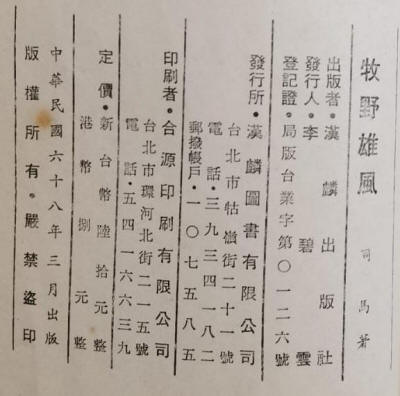 牧野雄風
司馬著
出版者·漢麟出版社
發行人·李碧雲
登記證·局版台業字第〇一二六號
發行所·漢麟圖書有限公司
台北市牯嶺街二十一號
電話·三九三四一八二
郵撥帳戶·一〇七五八五
印刷者·合源印刷有限公司
台北市環河北街二一五號
電話·五四一六六三九
定價·新台幣陸拾元整
港幣捌元整
中華民國六十八年三月出版
版權所有·嚴禁盜印